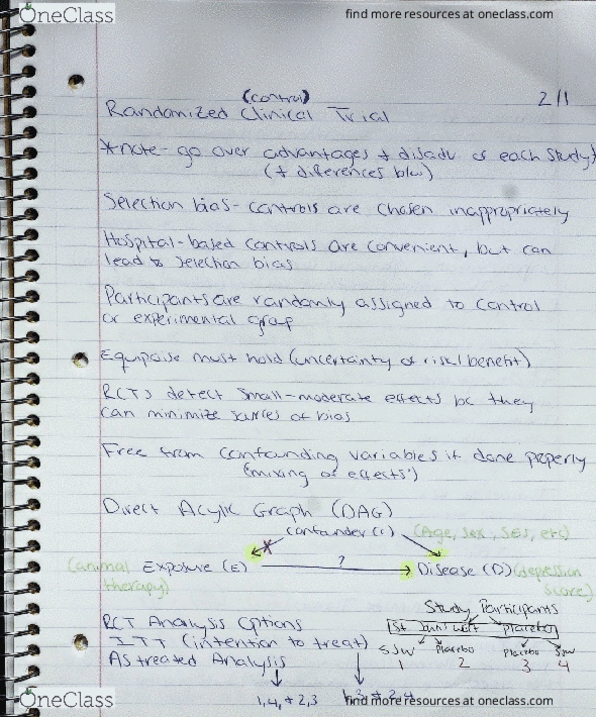 OneClass
find more resources at oneclass.com
2/1
(control)
Randomized Clinical Trial
*note- go over advantages + disadv of each study
(+ differences b/w)
Selection bias- controls are chosen inappropriately
Hospital-based controls are convenient, but can
lead to selection bias
Participants are randomly assigned to control
or experimental group
Equipoise must hold (uncertainty of risk/benefit)
RCTs detect small-moderate effects bc they
can minimize sources of bias
Free from confounding variables if done properly
(mixing of effects)
Direct Acylic Graph (DAG)
confounder (C) (Age, sex, SES, etc)
(animal Exposure (E) ? Disease (D) (depression
therapy) score)
Study Participants
RCT Analysis Options
St. John's Wort Placebo
ITT (intention to treat)
SJW Placebo Placebo SJW
As treated Analysis
1 2 3 4
1,4, + 2,3
OneClass
find more resources at oneclass.com